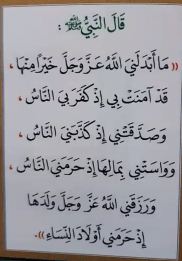 قَالَ النَّبِيُّ ﷺ :
(( مَا أَبْدَلَنِيَ اللَّهُ عَزَّ وَجَلَّ خَيْرًا مِنْهَا ،
قَدْ آمَنَتْ بِي إِذْ كَفَرَ بِيَ النَّاسُ ،
وَصَدَّقَتْنِي إِذْ كَذَّبَنِيَ النَّاسُ ،
وَوَاسَتْنِي بِمَالِهَا إِذْ حَرَمَنِيَ النَّاسُ ،
وَرَزَقَنِيَ اللَّهُ عَزَّ وَجَلَّ وَلَدَهَا
إِذْ حَرَمَنِي أَوْلَادَ النِّسَاءِ )).